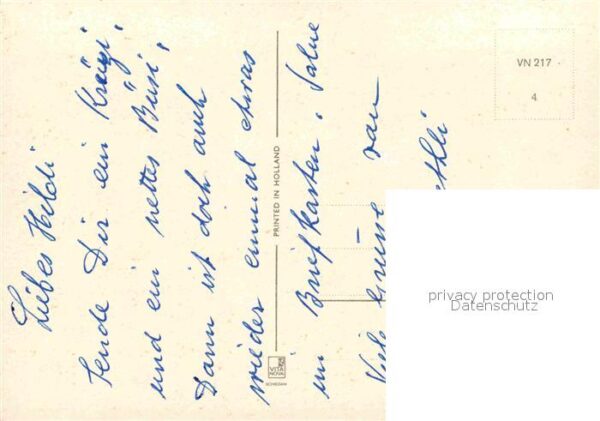 Liebes Hildi
Sende Dir ein Krägi,
und ein nettes Büsi,
Dann ist doch auch
wieder einmal etwas
im Briefkasten.
Viele Grüsse von
PRINTED IN HOLLAND
VITA
NOVA
SCHIEDAM
VN 217
4
privacy protection
Datenschutz